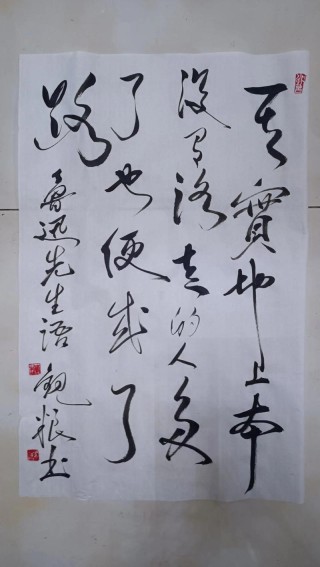 其實地上本
没有路走的人多
了也便成了
路
魯迅先生語 书